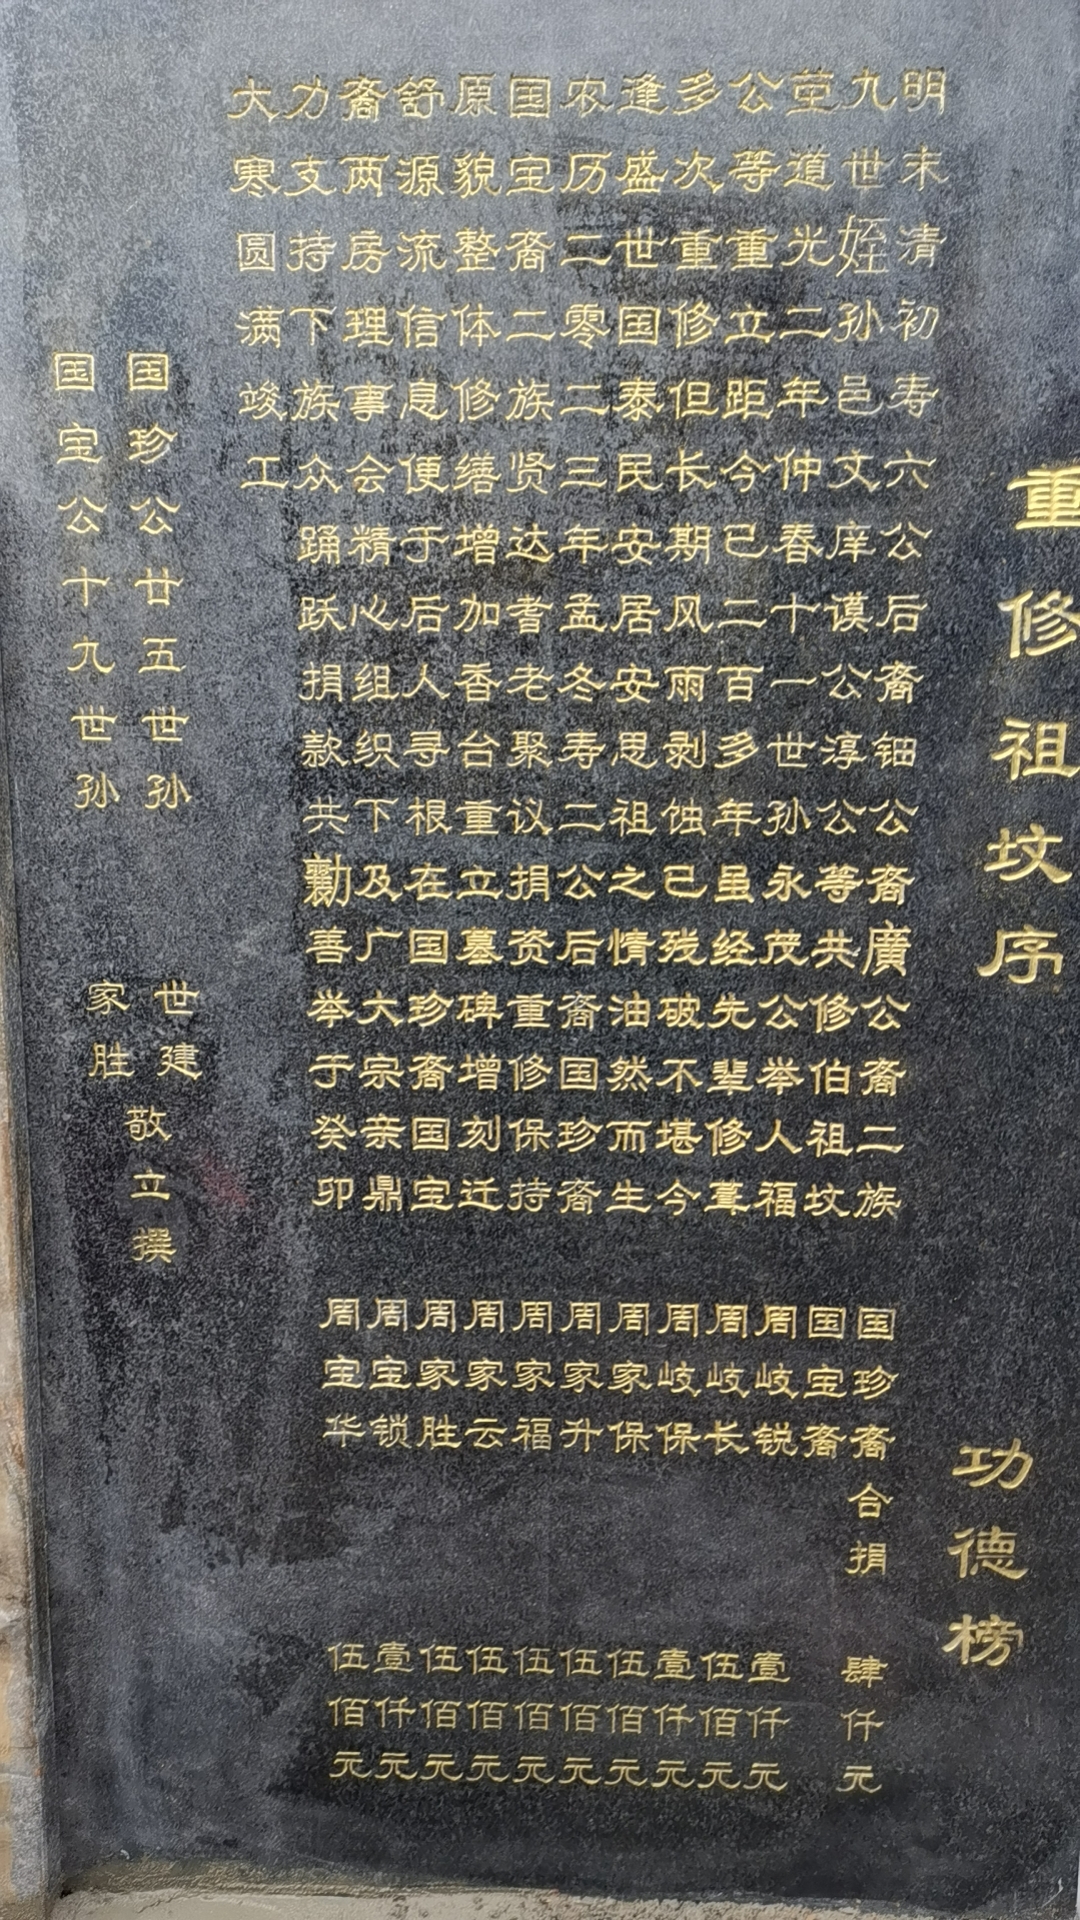 重修祖坟序
明末清初寿六公后裔钿公裔廣公裔二族
九世姪孙邑文庠谟公淳公等共修伯祖坟
茔道光二年仲春十一世孙永茂公举人福
公等重立距今已二百多年虽经先辈修葺
多次重修但长期风雨剥蚀已残破不堪今
逢盛世国泰民安居安思祖之情油然而生
农历二零二三年孟冬寿二公后裔国珍裔
国宝裔二族贤达耆老聚议捐资重修保持
原貌整体修缮增加香台重立墓碑增刻迁
舒源流信息便于后人寻根在国珍裔国宝
裔两房理事会精心组织下及广大宗亲鼎
力支持下族众踊跃捐款共勷善举于癸卯
大寒圆满竣工
国珍公廿五世孙 世建
国宝公十九世孙 家胜
敬立撰
功德榜
国珍裔合捐 肆仟元
国宝裔
周岐锐 壹仟元
周岐长 伍佰元
周岐保 壹仟元
周家保 伍佰元
周家升 伍佰元
周家福 伍佰元
周家云 伍佰元
周家胜 伍佰元
周宝锁 壹仟元
周宝华 伍佰元